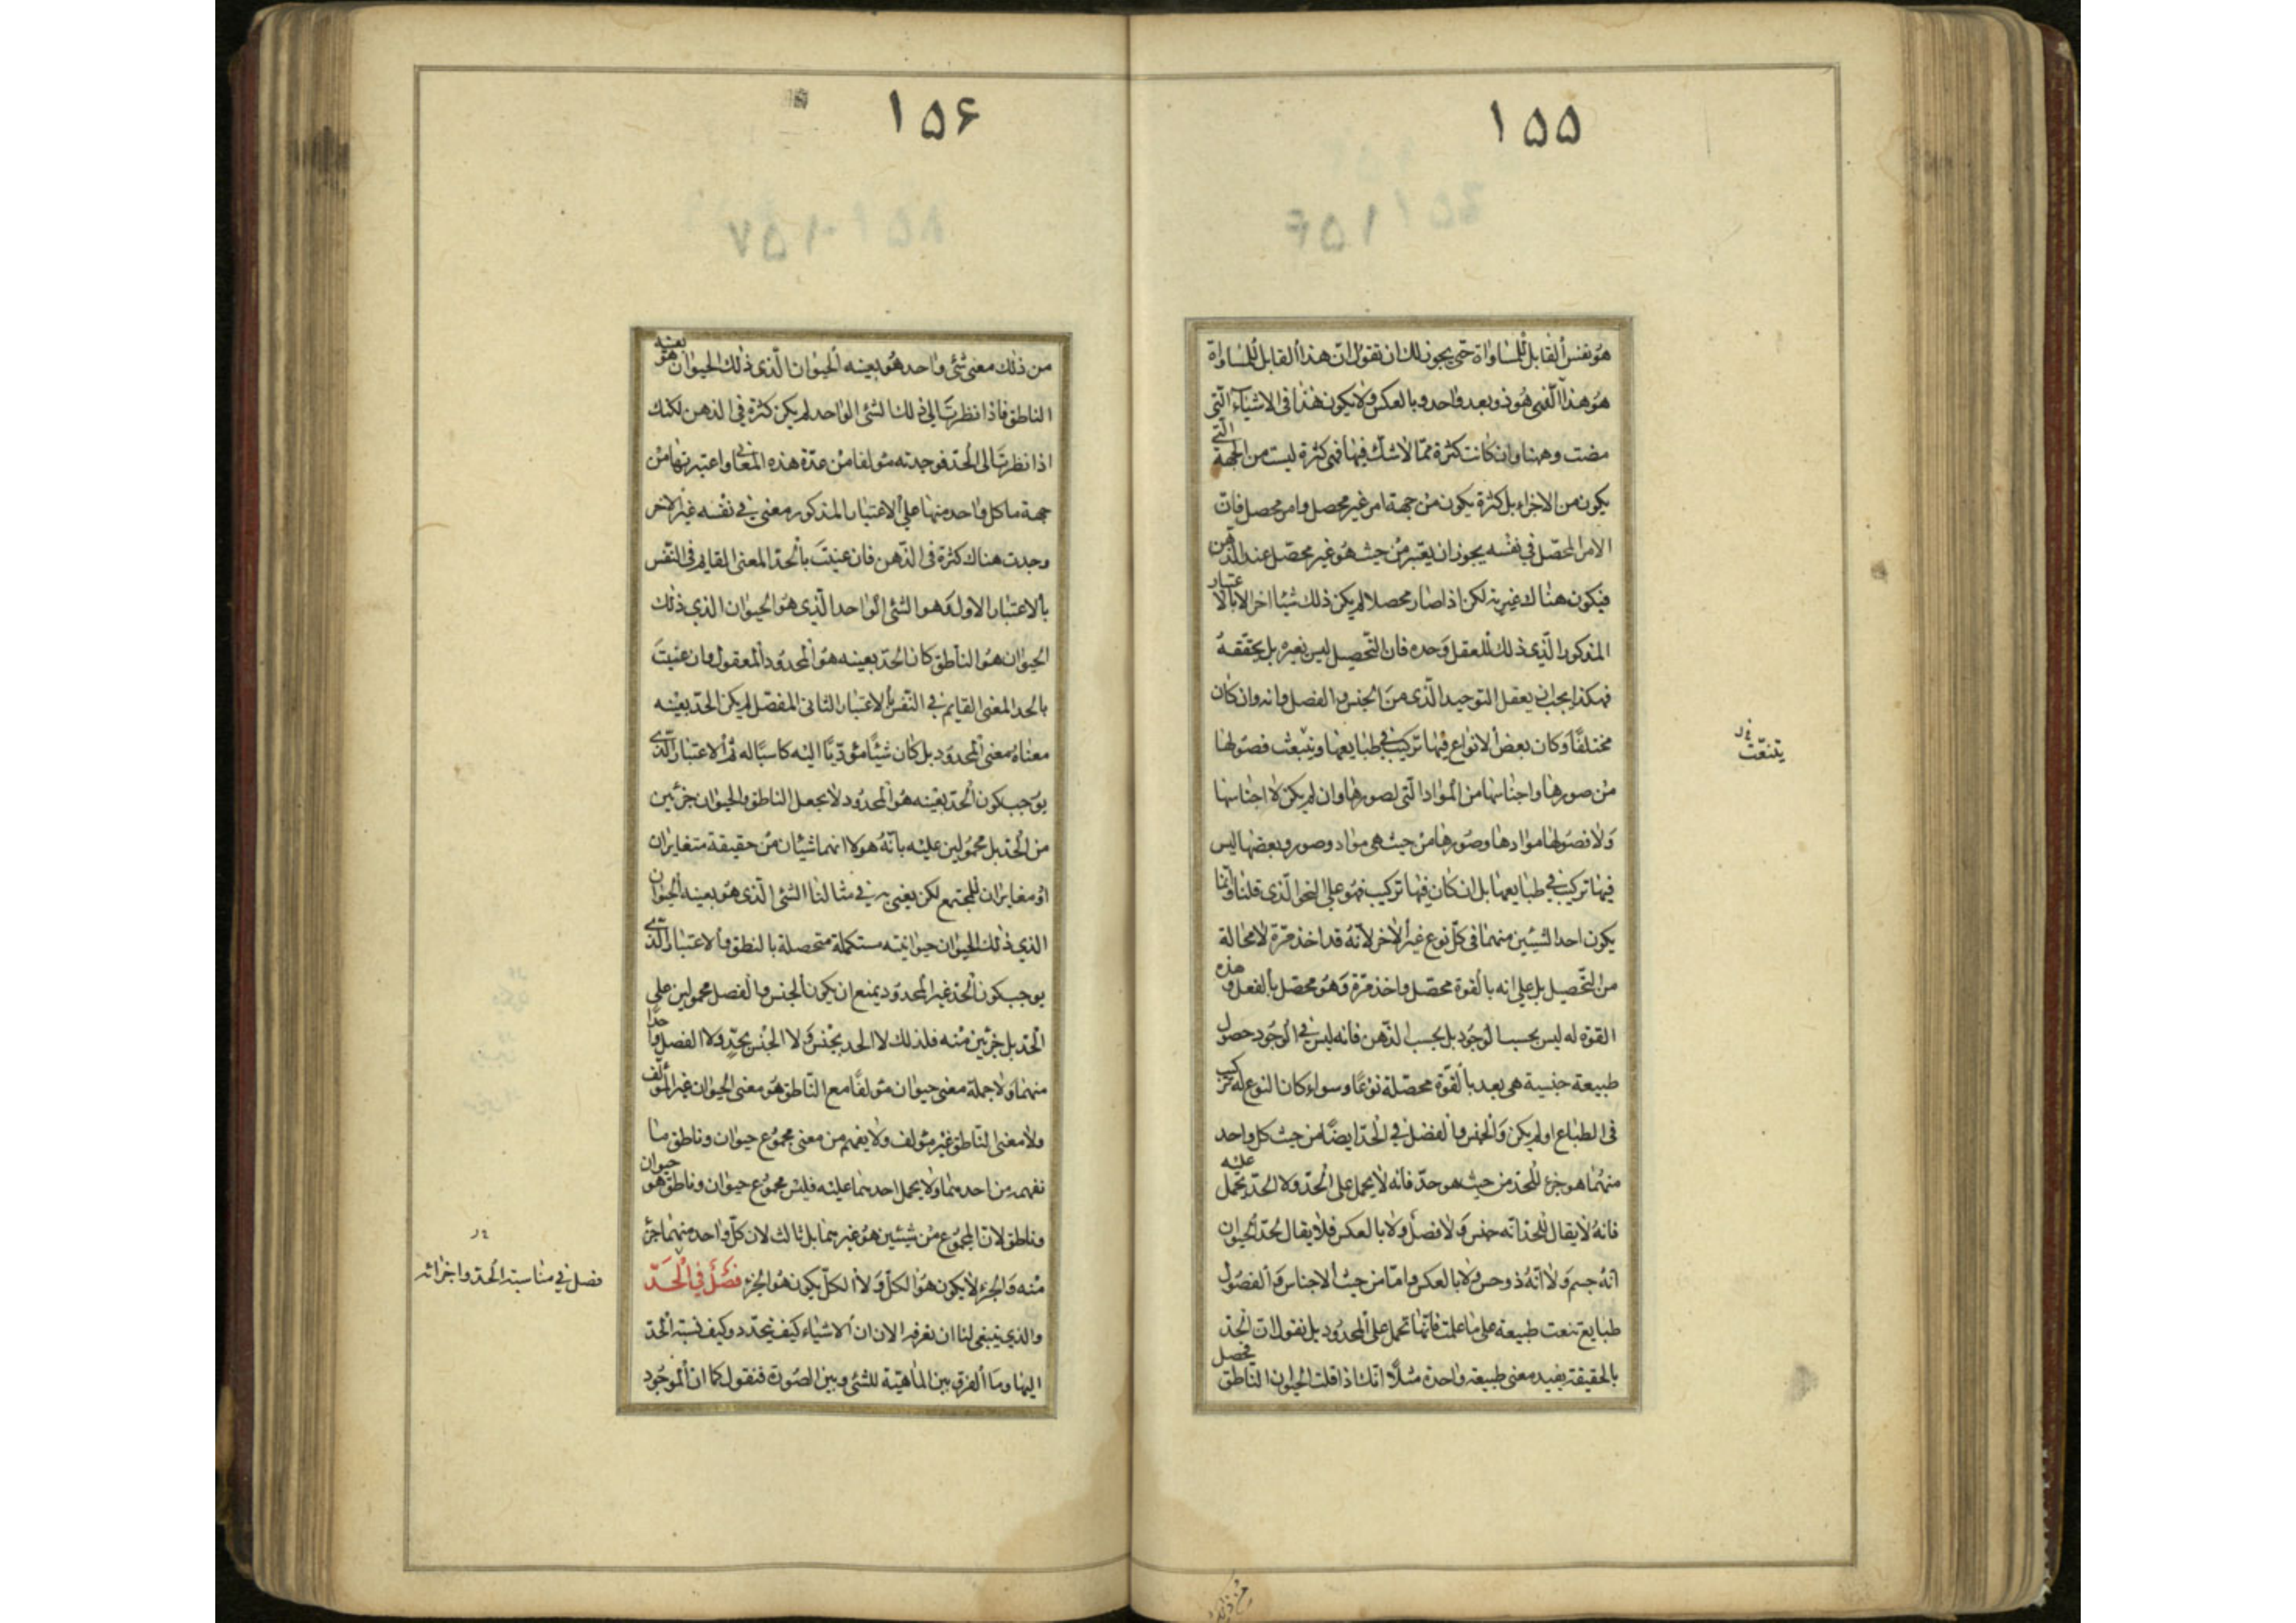 ١٥٥
هو نفس القابل للمساواة حتى يجوز لك ان تقول ان هذا القابل للمساواة
هو هذا الذى هو ذو بعد واحد وبالعكس ولا يكون هذا فى الاشياء التى
مضت وههنا وان كانت كثرة مما لا شك فيها فهى كثرة ليست من الجهة التى
يكون من الاجزاء بل كثرة يكون من جهة امر غير محصل وامر محصل فان
الامر المحصل فى نفسه يجوز ان يعتبر من حيث هو غير محصل عند الذهن
فيكون هناك غيرية لكن اذا صار محصلا لم يكن ذلك شيئا اخر الا بالاعتبار
المذكور الذى ذلك للعقل وحده فان التحصيل ليس يغيره بل يحققه
فهكذا يجب ان يعقل التوحيد الذى من الجنس والفصل وانه وان كان
مختلفا وكان بعض الانواع فيها تركيب فى طبايعها وينبعث فصولها
من صورها واجناسها من المواد التى لصورها وان لم يكن لا اجناسها
ولا فصولها موادها وصورها من حيث هى مواد وصور وبعضها ليس
فيها تركيب فى طبايعها بل ان كان فيها تركيب فهو على النحو الذى قلنا وانما
يكون احد الشيئين منهما فى كل نوع غير الاخر لانه قد اخذ مرة لا محالة
من التحصيل بل على انه بالقوة محصل واخذ مرة وهو محصل بالفعل وهذه
القوة له ليس بحسب الوجود بل بحسب الذهن فانه ليس فى الوجود حصول
طبيعة جنسية هى بعد بالقوة محصلة نوعا وسواء كان النوع له تركيب
فى الطباع او لم يكن والجنس والفصل فى الحد ايضا من حيث كل واحد
منهما هو جزء للحد من حيث هو حد فانه لا يحمل على الحد ولا الحد يحمل عليه
فانه لا يقال للحد انه جنس ولا فصل ولا بالعكس فلا يقال لحد الحيوان
انه جسم ولا انه ذو حس ولا بالعكس واما من حيث الاجناس والفصول
طبايع تنعت طبيعة على ما علمت فانها تحمل على المحدود بل نقول ان الحد
بالحقيقة يفيد معنى طبيعة واحدة مثلا انك اذا قلت الحيوان الناطق يحصل
تنعت
١٥۶
من ذلك معنى شئ واحد هو بعينه الحيوان الذى ذلك الحيوان هو بعينه
الناطق فاذا نظرت الى ذلك الشئ الواحد لم يكن كثرة فى الذهن لكنك
اذا نظرت الى الحد فوجدته مؤلفا من عدة هذه المعانى واعتبرتها من
جهة ما كل واحد منها على الاعتبار المذكور معنى فى نفسه غير الاخر
وجدت هناك كثرة فى الذهن فان عنيت بالحد المعنى القايم فى النفس
بالاعتبار الاول وهو الشئ الواحد الذى هو الحيوان الذى ذلك
الحيوان هو الناطق كان الحد بعينه هو المحدود المعقول وان عنيت
بالحد المعنى القايم فى النفس بالاعتبار الثانى المفصل لم يكن الحد بعينه
معناه معنى المحدود بل كان شيئا مؤديا اليه كاسبا له ثم الاعتبار الذى
يوجب كون الحد بعينه هو المحدود لا يجعل الناطق والحيوان جزئين
من الحد بل محمولين عليه بانه هو لا انهما شيئان من حقيقة متغايران
او مغايران للمجتمع لكن يعنى به فى مثالنا الشئ الذى هو بعينه الحيوان
الذى ذلك الحيوان حيوانيته مستكملة متحصلة بالنطق والاعتبار الذى
يوجب كون الحد غير المحدود يمنع ان يكون الجنس والفصل محمولين على
الحد بل جزئين منه فلذلك لا الحد بجنس ولا الجنس بحد ولا الفصل واحدا
منهما ولا جملة معنى حيوان مؤلفا مع الناطق هو معنى الحيوان غير المؤلف
ولا معنى الناطق غير مؤلف ولا يفهم من معنى مجموع حيوان وناطق ما
نفهمه من احدهما ولا يحمل احدهما عليه فليس مجموع حيوان وناطق هو حيوان
وناطق لان المجموع من شيئين هو غيرهما بل ثالث لان كل واحد منهما جزء
منه والجزء لا يكون هو الكل ولا الكل يكون هو الجزء فصل فى الحد
والذى ينبغى لنا ان نعرفه الان ان الاشياء كيف تتحدد وكيف نسبة الحد
اليها وما الفرق بين الماهية للشئ وبين الصورة فنقول كما ان الموجود
فصل فى مناسبة الحد واجزائه
من ذلك